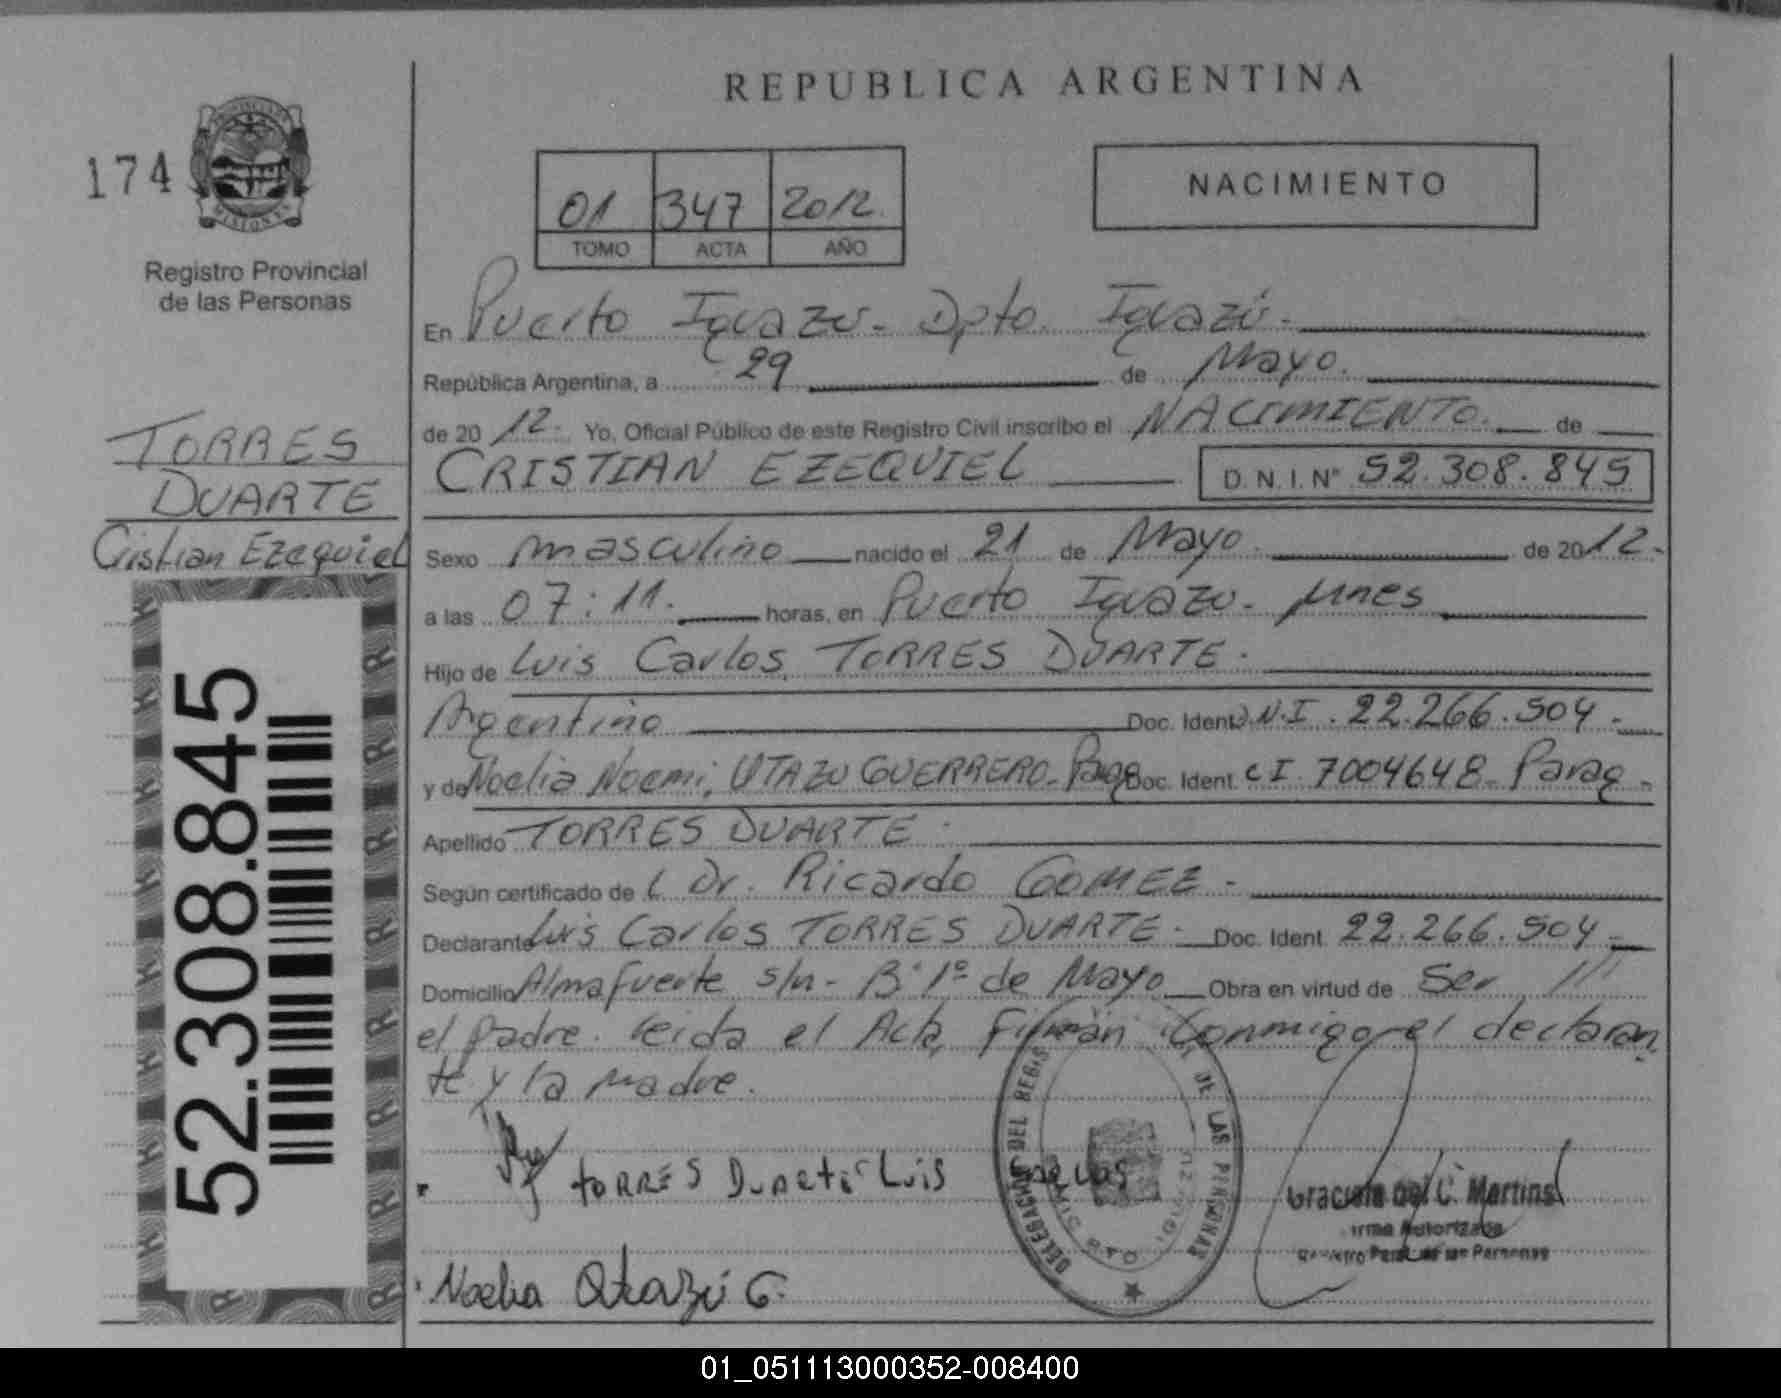 REPUBLICA ARGENTINA
174
MISIONES
Registro Provincial
de las Personas
01 347 2012
TOMO ACTA AÑO
NACIMIENTO
TORRES
DUARTE
Cristian Ezequiel
52.308.845
En Puerto Iguazú - Dpto. Iguazú -
República Argentina, a 29 de Mayo.
de 2012. Yo, Oficial Público de este Registro Civil inscribo el NACIMIENTO de
CRISTIAN EZEQUIEL D.N.I.Nº 52.308.845
Sexo masculino nacido el 21 de Mayo. de 2012.
a las 07:11. horas, en Puerto Iguazú - Mnes
Hijo de Luis Carlos, TORRES DUARTE.
Argentino Doc. Ident D.N.I. 22.266.504.
y de Noelia Noemi, OTAZU GUERRERO - Parag Doc. Ident. C I. 7004648 - Parag -
Apellido TORRES DUARTE.
Según certificado de Dr. Ricardo GOMEZ -
Declarante Luis Carlos TORRES DUARTE. Doc. Ident. 22.266.504.
Domicilio Almafuerte s/n - Bº 1º de Mayo Obra en virtud de Ser
el padre. leida el Acta, Firman conmigo el declaran
te y la Madre.
TORRES DUARTE LUIS CARLOS
DELEGACION DEL REGIS DE LAS PERSONAS
Graciela del C. Martins
Firma Autorizada
Registro Pcial. de las Personas
Noelia Otazú G.
01_051113000352-008400